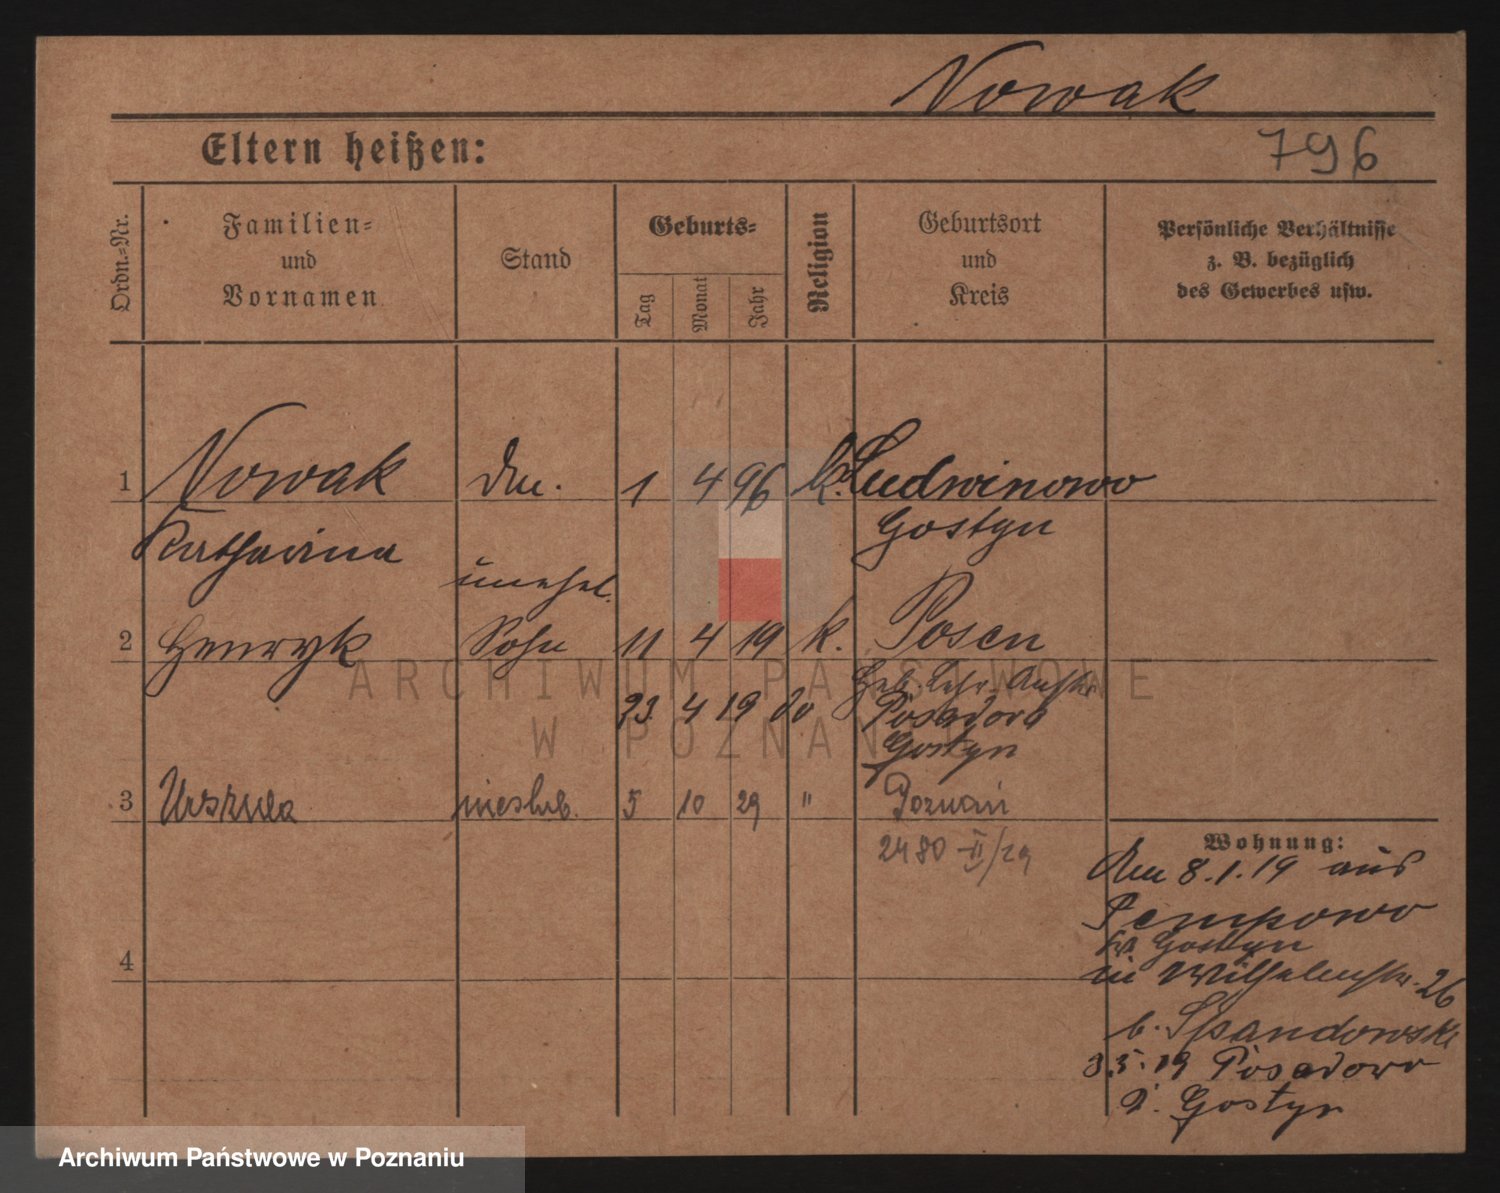 Nowak
Eltern heißen:
796
Ordn.=Nr.
Familien=
und
Vornamen
Stand
Geburts=
Tag
Monat
Jahr
Religion
Geburtsort
und
Kreis
Persönliche Verhältnisse
z. B. bezüglich
des Gewerbes usw.
1 Nowak 1 4 96 k. Ludwinowo
Katharina Gostyn
unehel.
2 Henryk Sohn 11 4 19 k. Posen
23. 4 19 do Posadovo
Gostyn
3 Urszula nieślub. 5 10 29 " Poznań
2480 II/29
Wohnung:
Am 8.1.19 aus
Pempowo
Kr. Gostyn
in Wilhelmstr. 26
b. Spandowski
3.5.19 Posadowo
Gostyn
4
ARCHIWUM PAŃSTWOWE
W POZNANIU
Archiwum Państwowe w Poznaniu